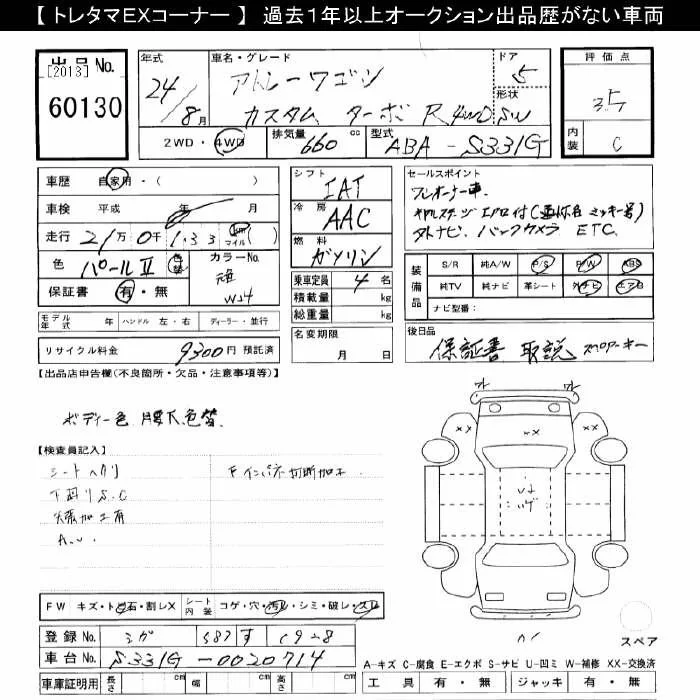 【 トレタマEXコーナー 】 過去１年以上オークション出品歴がない車両
出品 No.
[2013]
60130
年式
24/8月
車名・グレード
アトレーワゴン
カスタム ターボ R 4WD SW
ドア
5
形状
2WD・4WD
排気量 660 cc
型式 ABA - S331G
評価点
3.5
内装
C
車歴 自家用・( )
車検 平成 年 月
走行 21万 0千 133 km マイル ( )
色 パールⅡ 色替
カラーNo.
W24
保証書 有・無
シフト
IAT
冷房
AAC
燃料
ガソリン
乗車定員 4 名
積載量 kg
総重量 kg
セールスポイント
ワンオーナー車
外ナビ バックカメラ ETC
装備品
S/R 純A/W P/S P/W ABS
純TV 純ナビ 革シート 外ナビ エアB
ナビ型番:
モデル年式 年 ハンドル 左・右 ディーラー・並行
リサイクル料金 9300円 預託済
名変期限
月 日
後日品
保証書 取説 スペアキー
【出品店申告欄(不良箇所・欠品・注意事項等)】
ボディー色 腰下色替
【検査員記入】
シートヘタリ
下回りS.C
A.U
F インパネ切断加工
XX XX XX
FW キズ・ト石・割レX
シート内装 コゲ・穴・汚レ・シミ・破レ・スレ
登録 No. シガ 587 す
車台 No. S331G-0020714
車庫証明用 長さ cm 幅 cm 高さ cm
スペア
A-キズ C-腐食 E-エクボ S-サビ U-凹ミ W-補修 XX-交換済
工具 有・無 ジャッキ 有・無